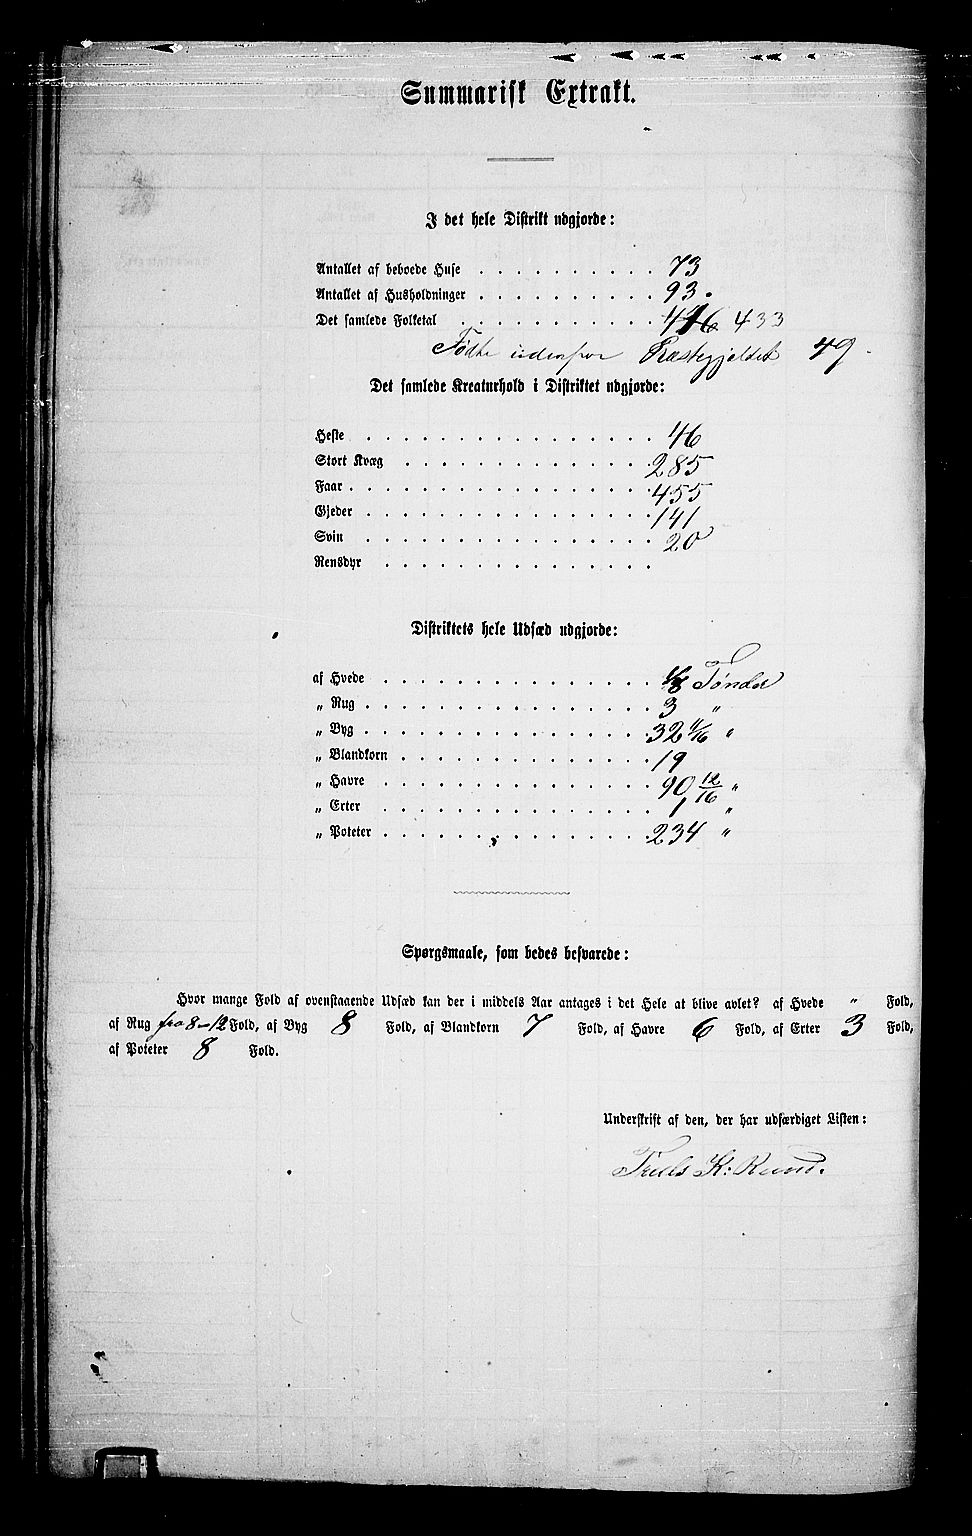 Summarisk Extrakt.
I det hele Distrikt udgjorde:
Antallet af beboede Huse . . . . . . . . . . 73
Antallet af Husholdninger . . . . . . . . . . 93.
Det samlede Folketal . . . . . . . . . . . 433
Fødte udenfor Præstegjeldet 49.
Det samlede Kreaturhold i Distriktet udgjorde:
Heste . . . . . . . . . . . . . . . . 46
Stort Kvæg . . . . . . . . . . . . . . 285
Faar . . . . . . . . . . . . . . . . . 455
Gjeder . . . . . . . . . . . . . . . . 141
Svin . . . . . . . . . . . . . . . . 20
Rensdyr . . . . . . . . . . . . . . .
Distriktets hele Udsæd udgjorde:
af Hvede . . . . . . . . . . . . . . . 1/8 Tønder
„ Rug . . . . . . . . . . . . . . . . 3 "
„ Byg . . . . . . . . . . . . . . . . 32 11/16 "
„ Blandkorn . . . . . . . . . . . . . . 19
„ Havre . . . . . . . . . . . . . . . 90 12/16 "
„ Erter . . . . . . . . . . . . . . . 1 "
„ Poteter . . . . . . . . . . . . . . . 234 "
Spørgsmaale, som bedes besvarede:
Hvor mange Fold af ovenstaaende Udsæd kan der i middels Aar antages i det Hele at blive avlet? af Hvede " Fold,
af Rug fra 8-12 Fold, af Byg 8 Fold, af Blandkorn 7 Fold, af Havre 6 Fold, af Erter 3 Fold,
af Poteter 8 Fold.
Underskrift af den, der har udfærdiget Listen:
K: